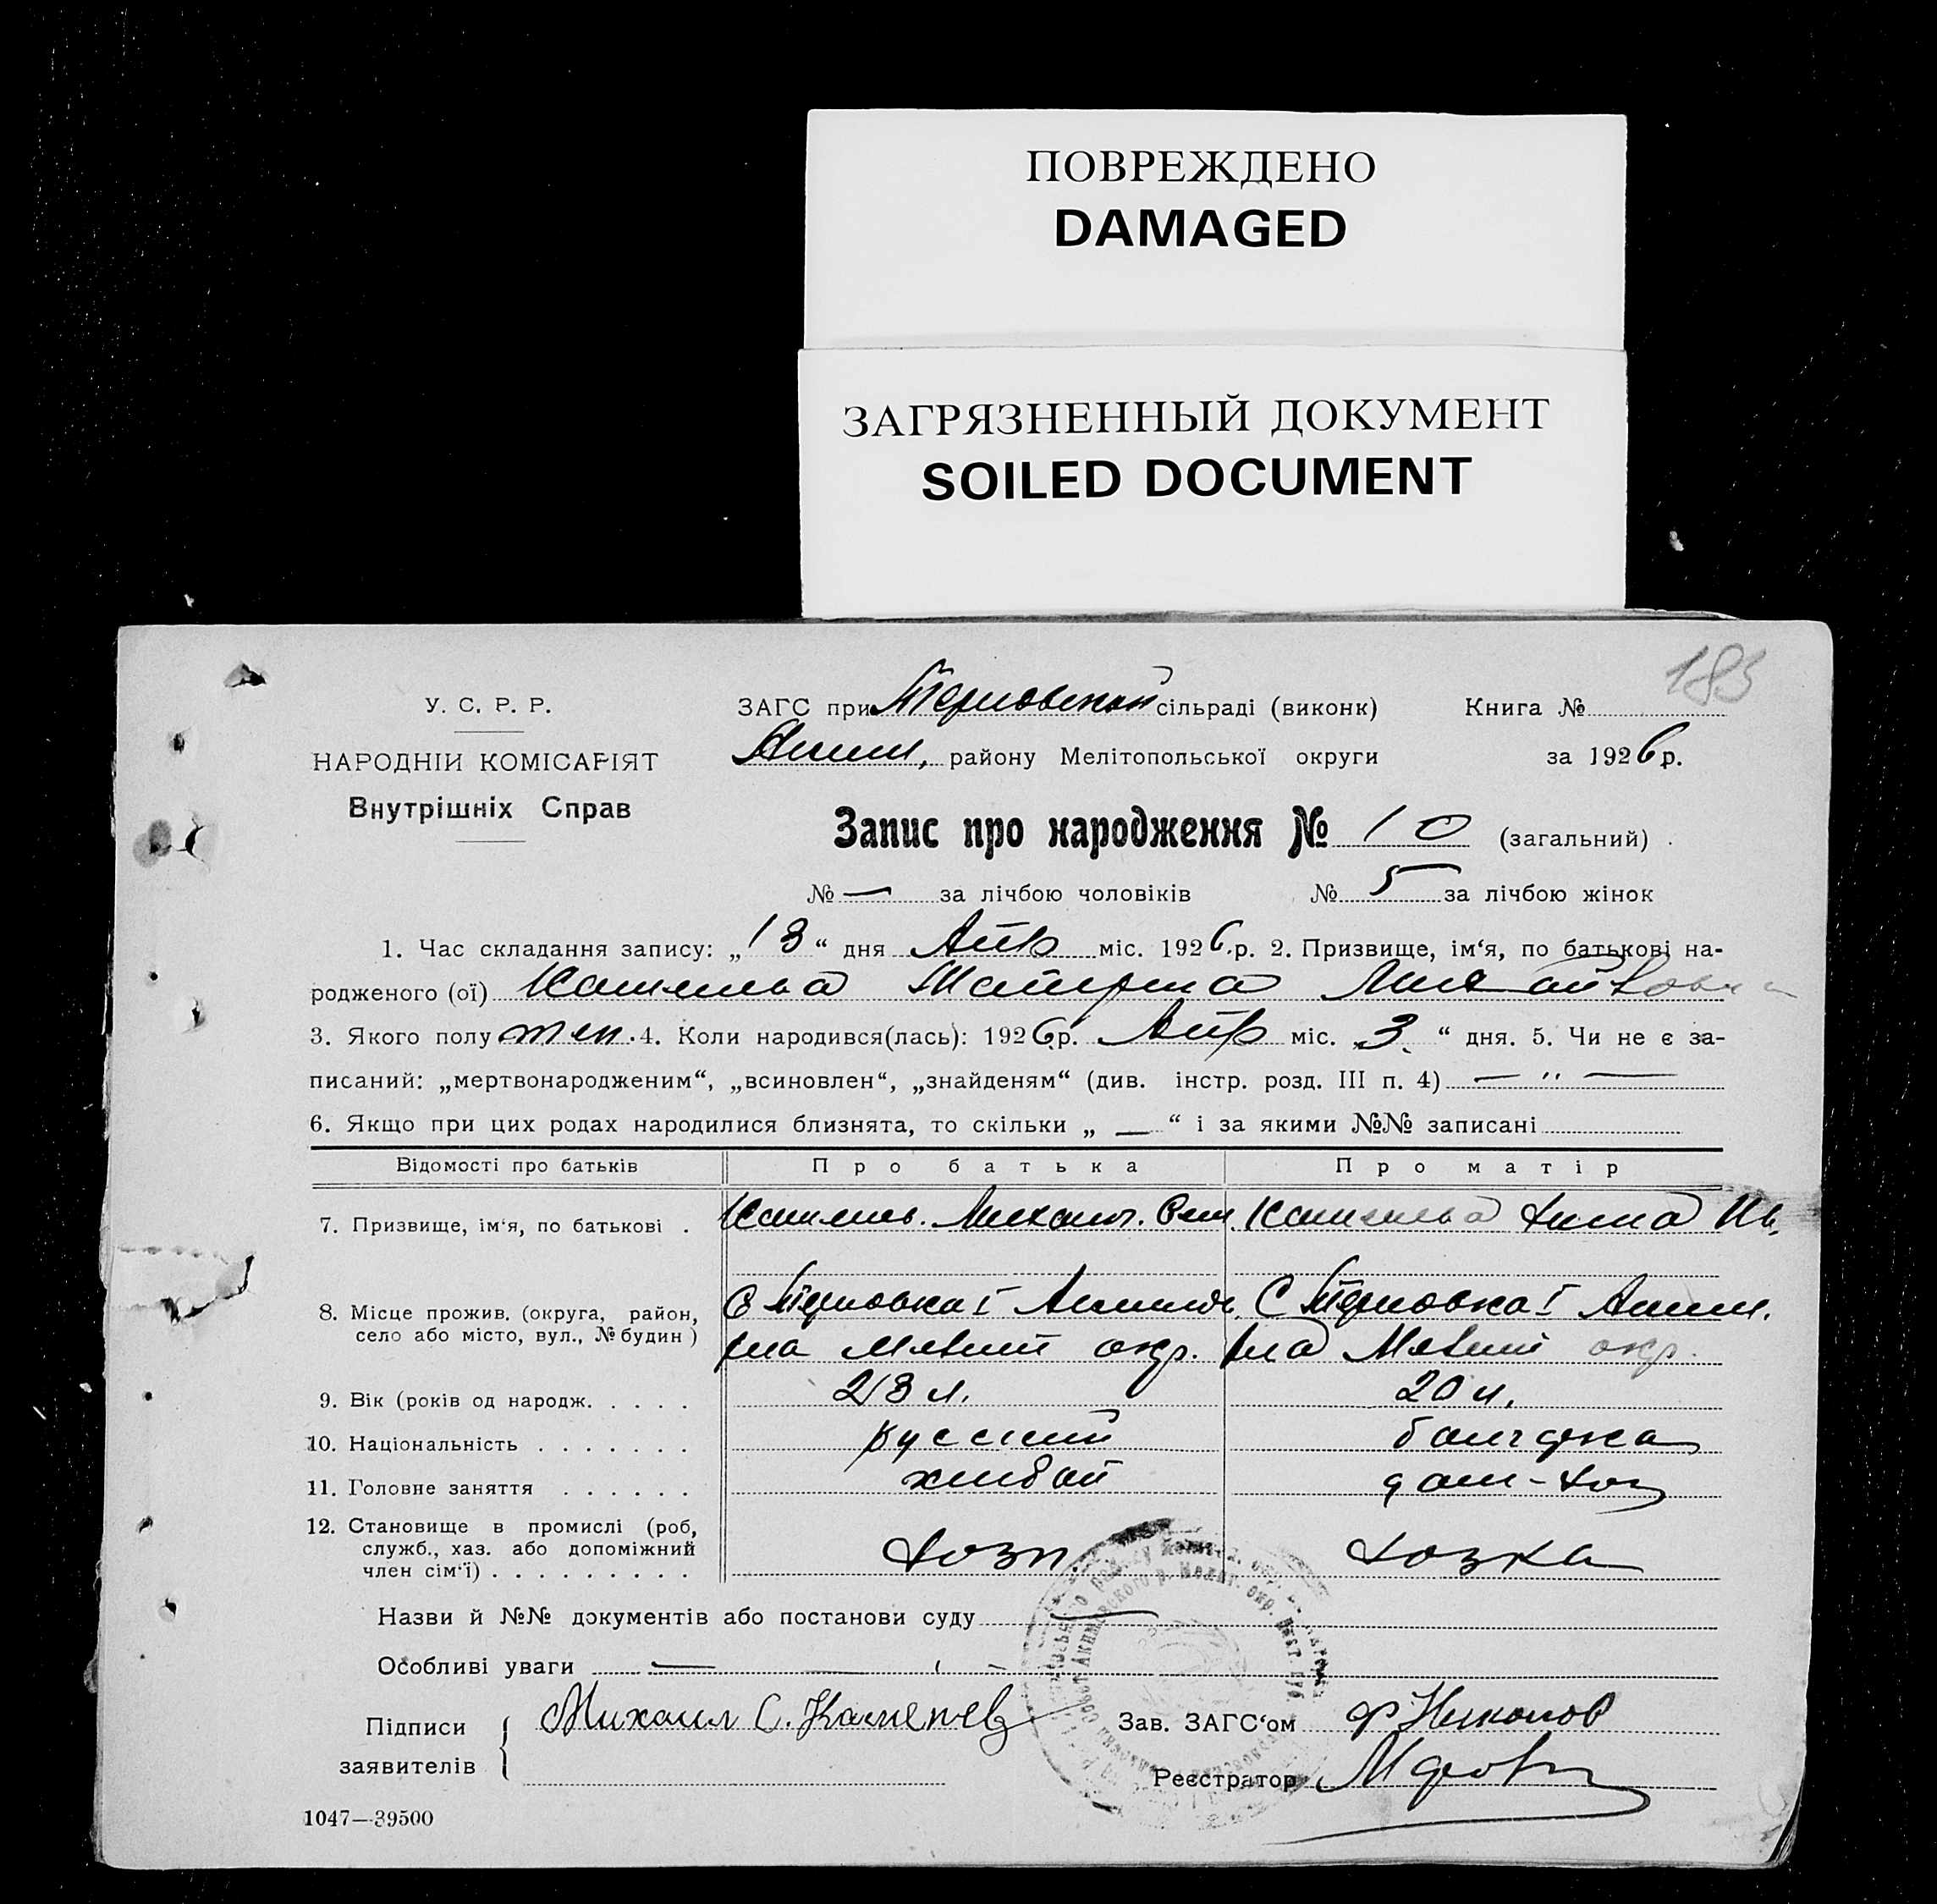 ПОВРЕЖДЕНО
DAMAGED
ЗАГРЯЗНЕННЫЙ ДОКУМЕНТ
SOILED DOCUMENT
183
У. С. Р. Р.
НАРОДНІЙ КОМІСАРІЯТ
Внутрішніх Справ
ЗАГС при Терновской сільраді (виконк) Книга №
Аким. району Мелітопольської округи за 1926 р.
Запис про народження № 10 (загальний)
№ — за лічбою чоловіків № 5 за лічбою жінок
1. Час складання запису: „13“ дня Апр міс. 1926 р. 2. Призвище, ім‘я, по батькові на-
родженого (ої)
3. Якого полу жен. 4. Коли народився(лась): 1926 р. Апр міс. „3“ дня. 5. Чи не є за-
писаний: „мертвонародженим“, „всиновлен“, „знайденям“ (див. інстр. розд. III п. 4) — „ —
6. Якщо при цих родах народилися близнята, то скільки „ — “ і за якими №№ записані
Відомості про батьків Про батька Про матір
7. Призвище, ім‘я, по батькові .
8. Місце прожив. (округа, район, С Терновка I Акимов. С Терновка I Аким.
село або місто, вул., № будин) рна Мелит окр. рна Мелит окр.
9. Вік (років од народж. . . . . 23 л. 20 л.
10. Національність . . . . . . . русский болгарка
11. Головне заняття . . . . . . хлебоп дом-хоз
12. Становище в промислі (роб,
служб., хаз. або допоміжний хозн. хозка
член сім‘ї) . . . . . . . . .
Назви й №№ документів або постанови суду —
Особливі уваги —
Підписи Михаил С. Зав. ЗАГС‘ом
заявителів Реєстратор
1047—39500